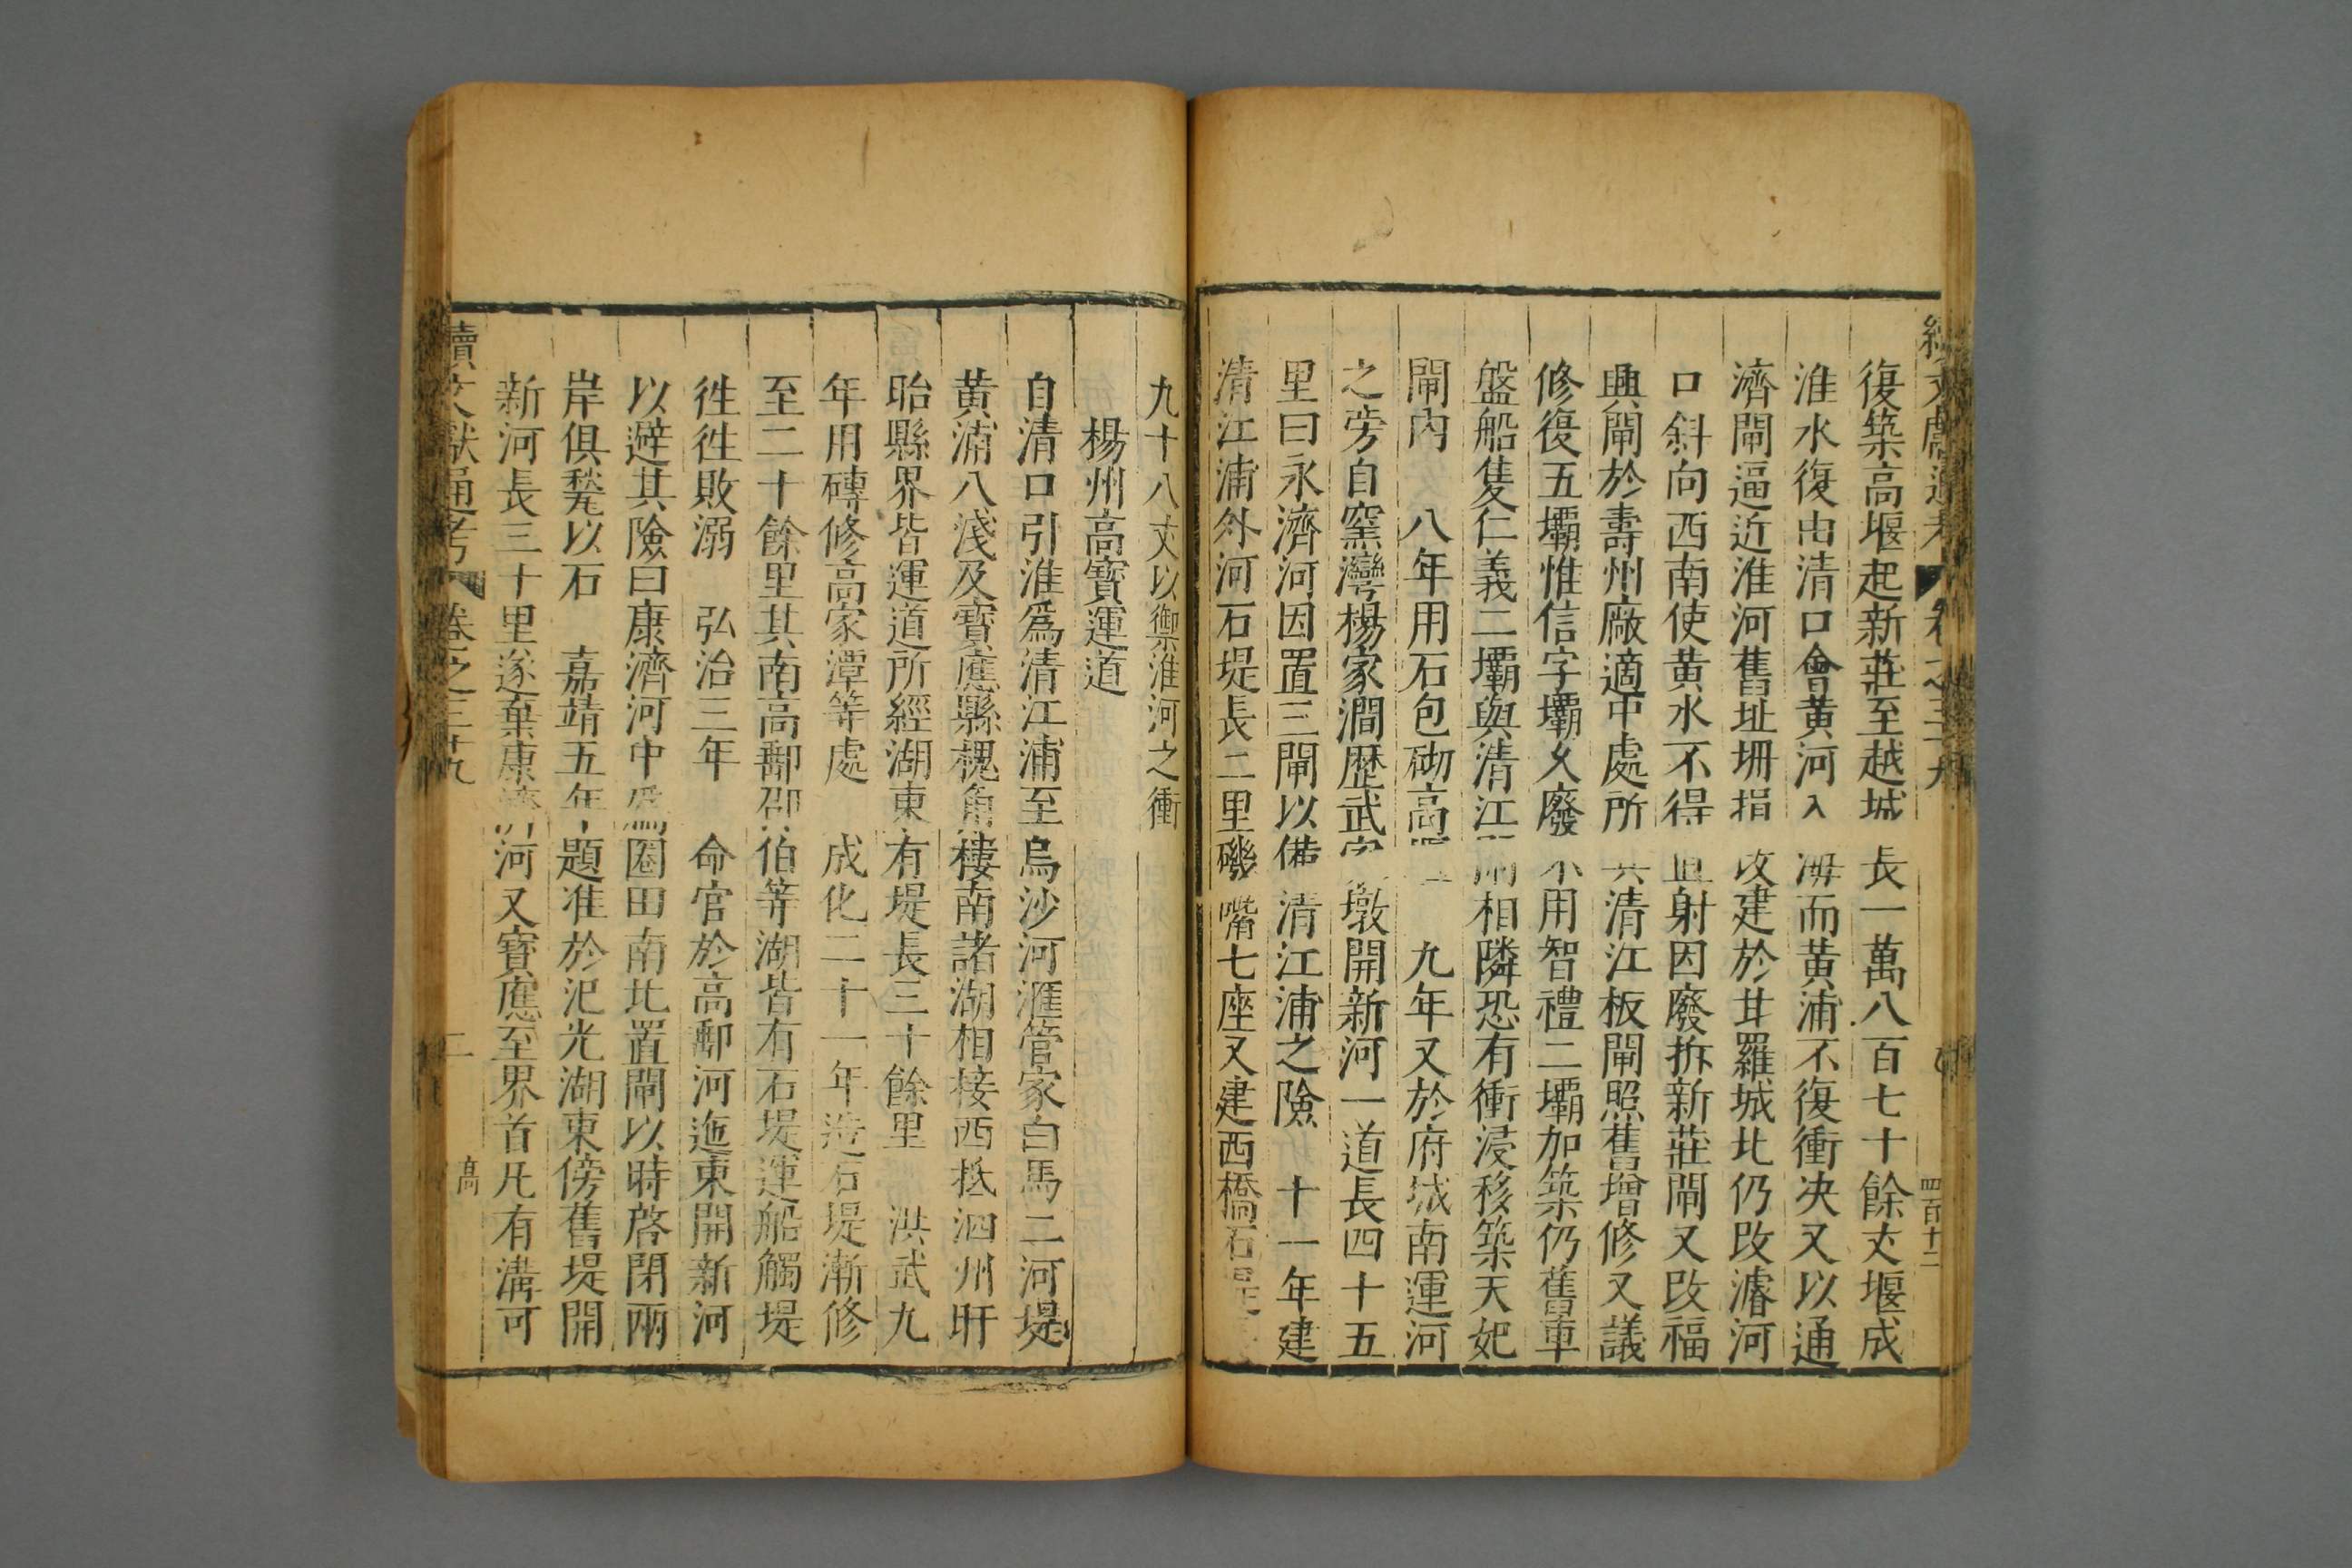 復築高堰起新莊至越城長一萬八百七十餘丈堰成
淮水復由清口會黄河入海而黄浦不復衝决又以通
濟閘逼近淮河舊址坍損改建於甘羅城北仍改濬河
口斜向西南使黄水不得直射因廢拆新莊閘又改福
興閘於壽州廠適中處所其清江板閘照舊增修又議
修復五壩惟信字壩乆廢不用智禮二壩加築仍舊車
盤船隻仁義二壩與清江閘相隣恐有衝浸移築天妃
閘内　八年用石包砌高　九年又於府城南運河
之旁自窯灣楊家澗歷武家墩開新河一道長四十五
里曰永濟河因置三閘以備清江浦之險　十一年建
清江浦外河石堤長二里磯嘴七座又建西橋石堤長
九十八丈以禦淮河之衝
楊州高寳運道
自清口引淮爲清江浦至烏沙河滙管家白馬二河堤
黄浦八淺及寳應縣槐角樓南諸湖相接西抵泗州盱
眙縣界皆運道所經湖東有堤長三十餘里　洪武九
年用磚修高家潭等處　成化二十一年造石堤漸修
至二十餘里其南高郵邵伯等湖皆有石堤運船觸堤
徃徃敗溺　弘治三年　命官於高郵河迤東開新河
以避其險曰康濟河中爲圈田南北置閘以時啓閉兩
岸俱甃以石　嘉靖五年題准於汜光湖東傍舊堤開
新河長三十里遂棄康濟河又寳應至界首凡有溝可
續文獻通考 卷之三十九 二 高